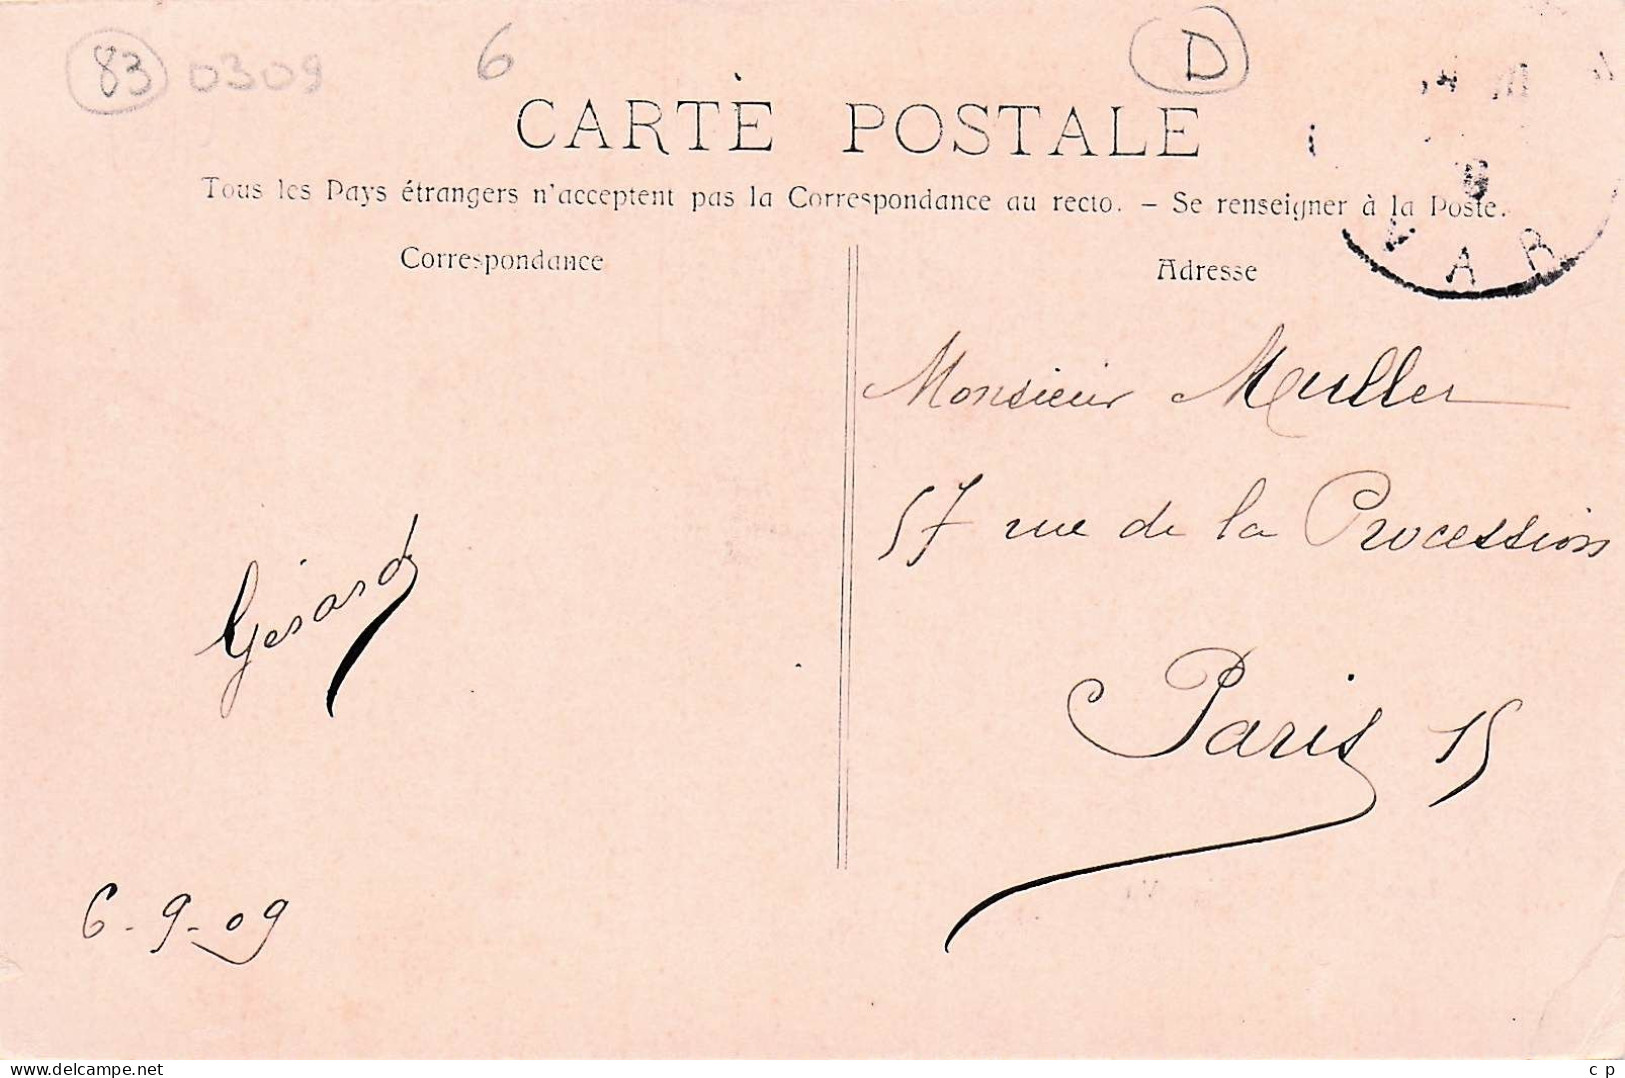 83 0309
6
D
CARTE POSTALE
Tous les Pays étrangers n'acceptent pas la Correspondance au recto. – Se renseigner à la Poste.
VAR
Correspondance
Adresse
Monsieur Muller
57 rue de la Procession
Paris 15
Gérard
6-9-09
www.delcampe.net
c p